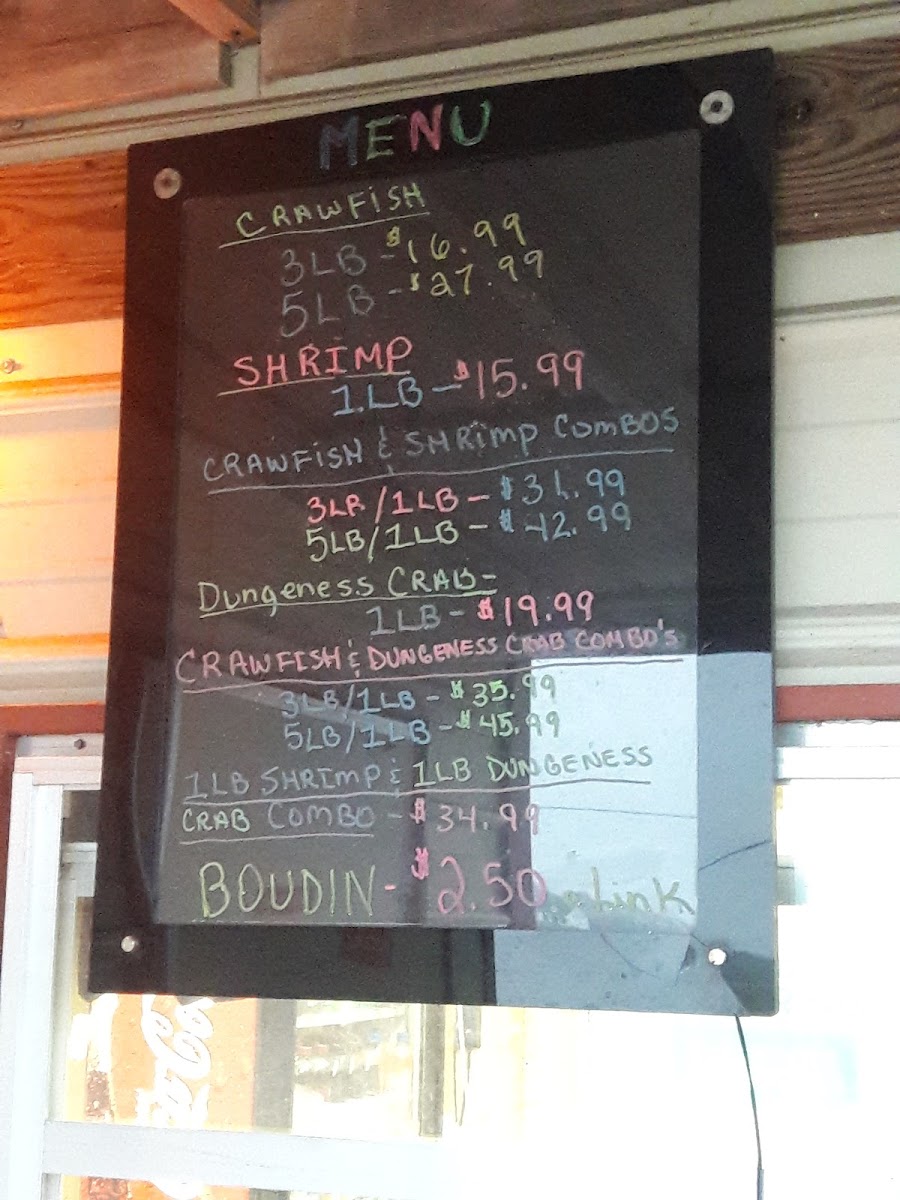 MENU
CRAWFISH
3LB - $16.99
5LB - $27.99
SHRIMP
1.LB - $15.99
CRAWFISH & SHRIMP COMBOS
3LB/1LB - $31.99
5LB/1LB - $42.99
Dungeness CRAB-
1LB - $19.99
CRAWFISH & DUNGENESS CRAB COMBO'S
3LB/1LB - $35.99
5LB/1LB - $45.99
1LB SHRIMP & 1LB DUNGENESS
CRAB COMBO - $34.99
BOUDIN - $2.50 Link